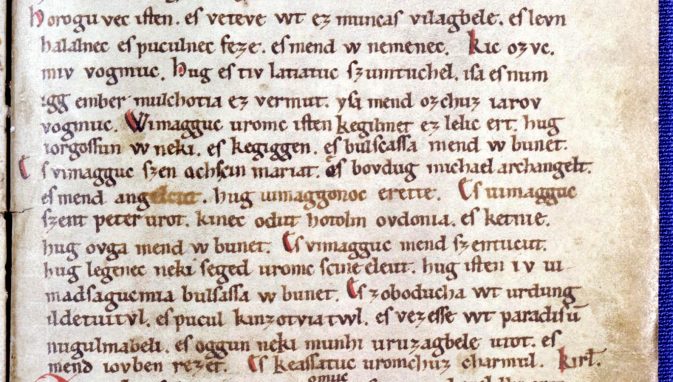 horogu vec isten. es veteve wt ez muncas vilagbele. es levn
halalnec es puculnec feze. es mend w nemenec. kic ozvc.
miv vogmuc. hug es tiv latiatuc szumtuchel. isa es num
igg ember mulchotia ez vermut. ysa mend ozchuz iarov
vogmuc. Wimagguc uromc isten kegilmet ez lelic ert. hug
iorgossun w neki. es kegiggen. es bulscassa mend w bunet.
Es vimagguc szen achscin mariat. es bovdug michael archangelt.
es mend angelcut. hug uimaggonoc erette. Es uimagguc
szent peter urot. kinec odut hotolm ovdonia. es ketnie.
hug ovga mend w bunet. Es vimagguc mend szentucut.
hug legenec neki seged uromc scine eleut. hug isten iv ui
madsagucmia bulsassa w bunet. Es zoboducha wt urdung
ildetuitvl. es pucul kinzotviatwl. es vezesse wt paradisū
nugulmabeli. es oggun neki munhi uruzagbele utot. es
mend iovben rezet. Es keassatuc uromchuz charmul. kirł.